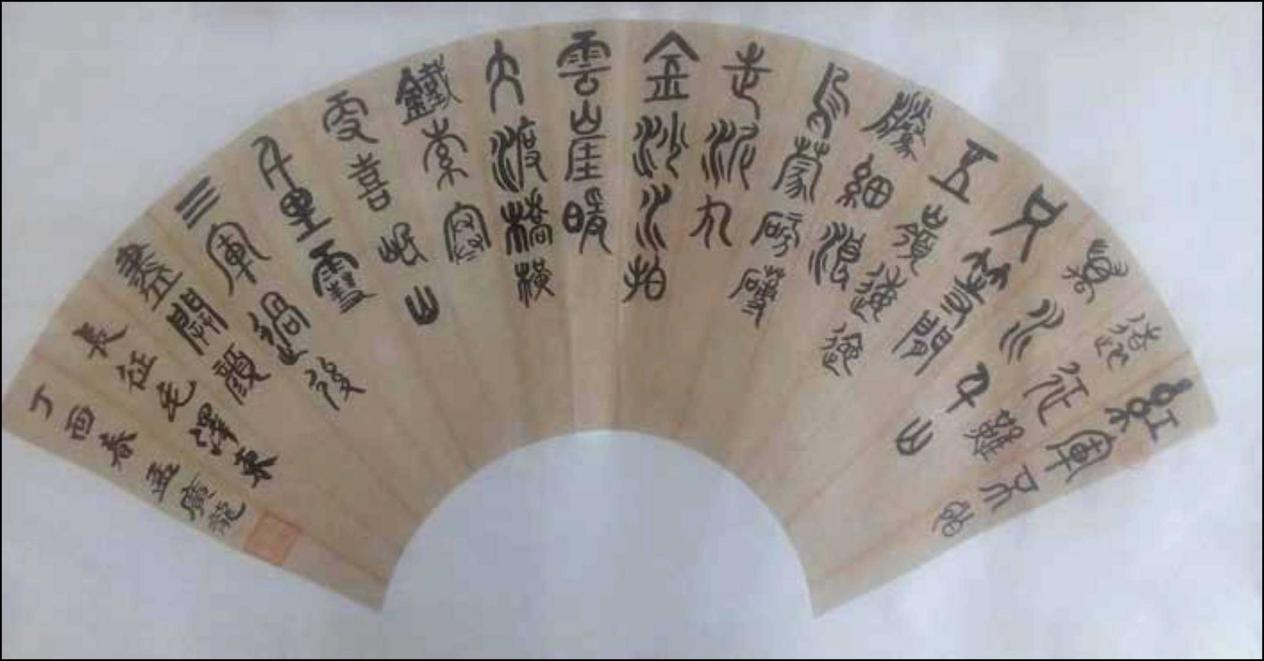 紅軍不怕
遠征難
萬水千山
只等閒
五嶺逶迤
騰細浪
烏蒙磅礴
走泥丸
金沙水拍
雲崖暖
大渡橋橫
鐵索寒
更喜岷山
千里雪
三軍過後
盡開顏
長征毛澤東
丁酉春孟廣龍